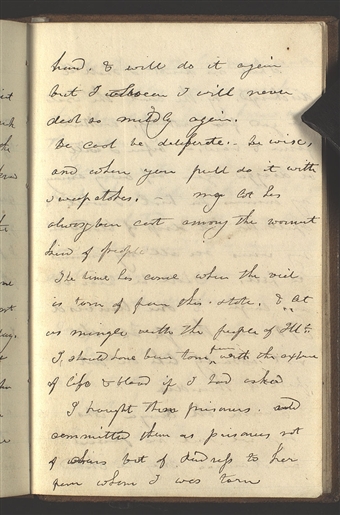 hand. & will do it again
but I will never
deal so mildly again.
Be cool be deliberate. be wise,
and when you pull do it with
sweepstakes. my lot has
always been cast among the warmest
kind of people
The time has come when the veil
is torn of from this state. &
us mingle with the people of Ill
I should have been torn from with the expense
of life & blood if I had asked
I bought these prisoners. and
committed them as prisoners not
of but of to her
when I was torn